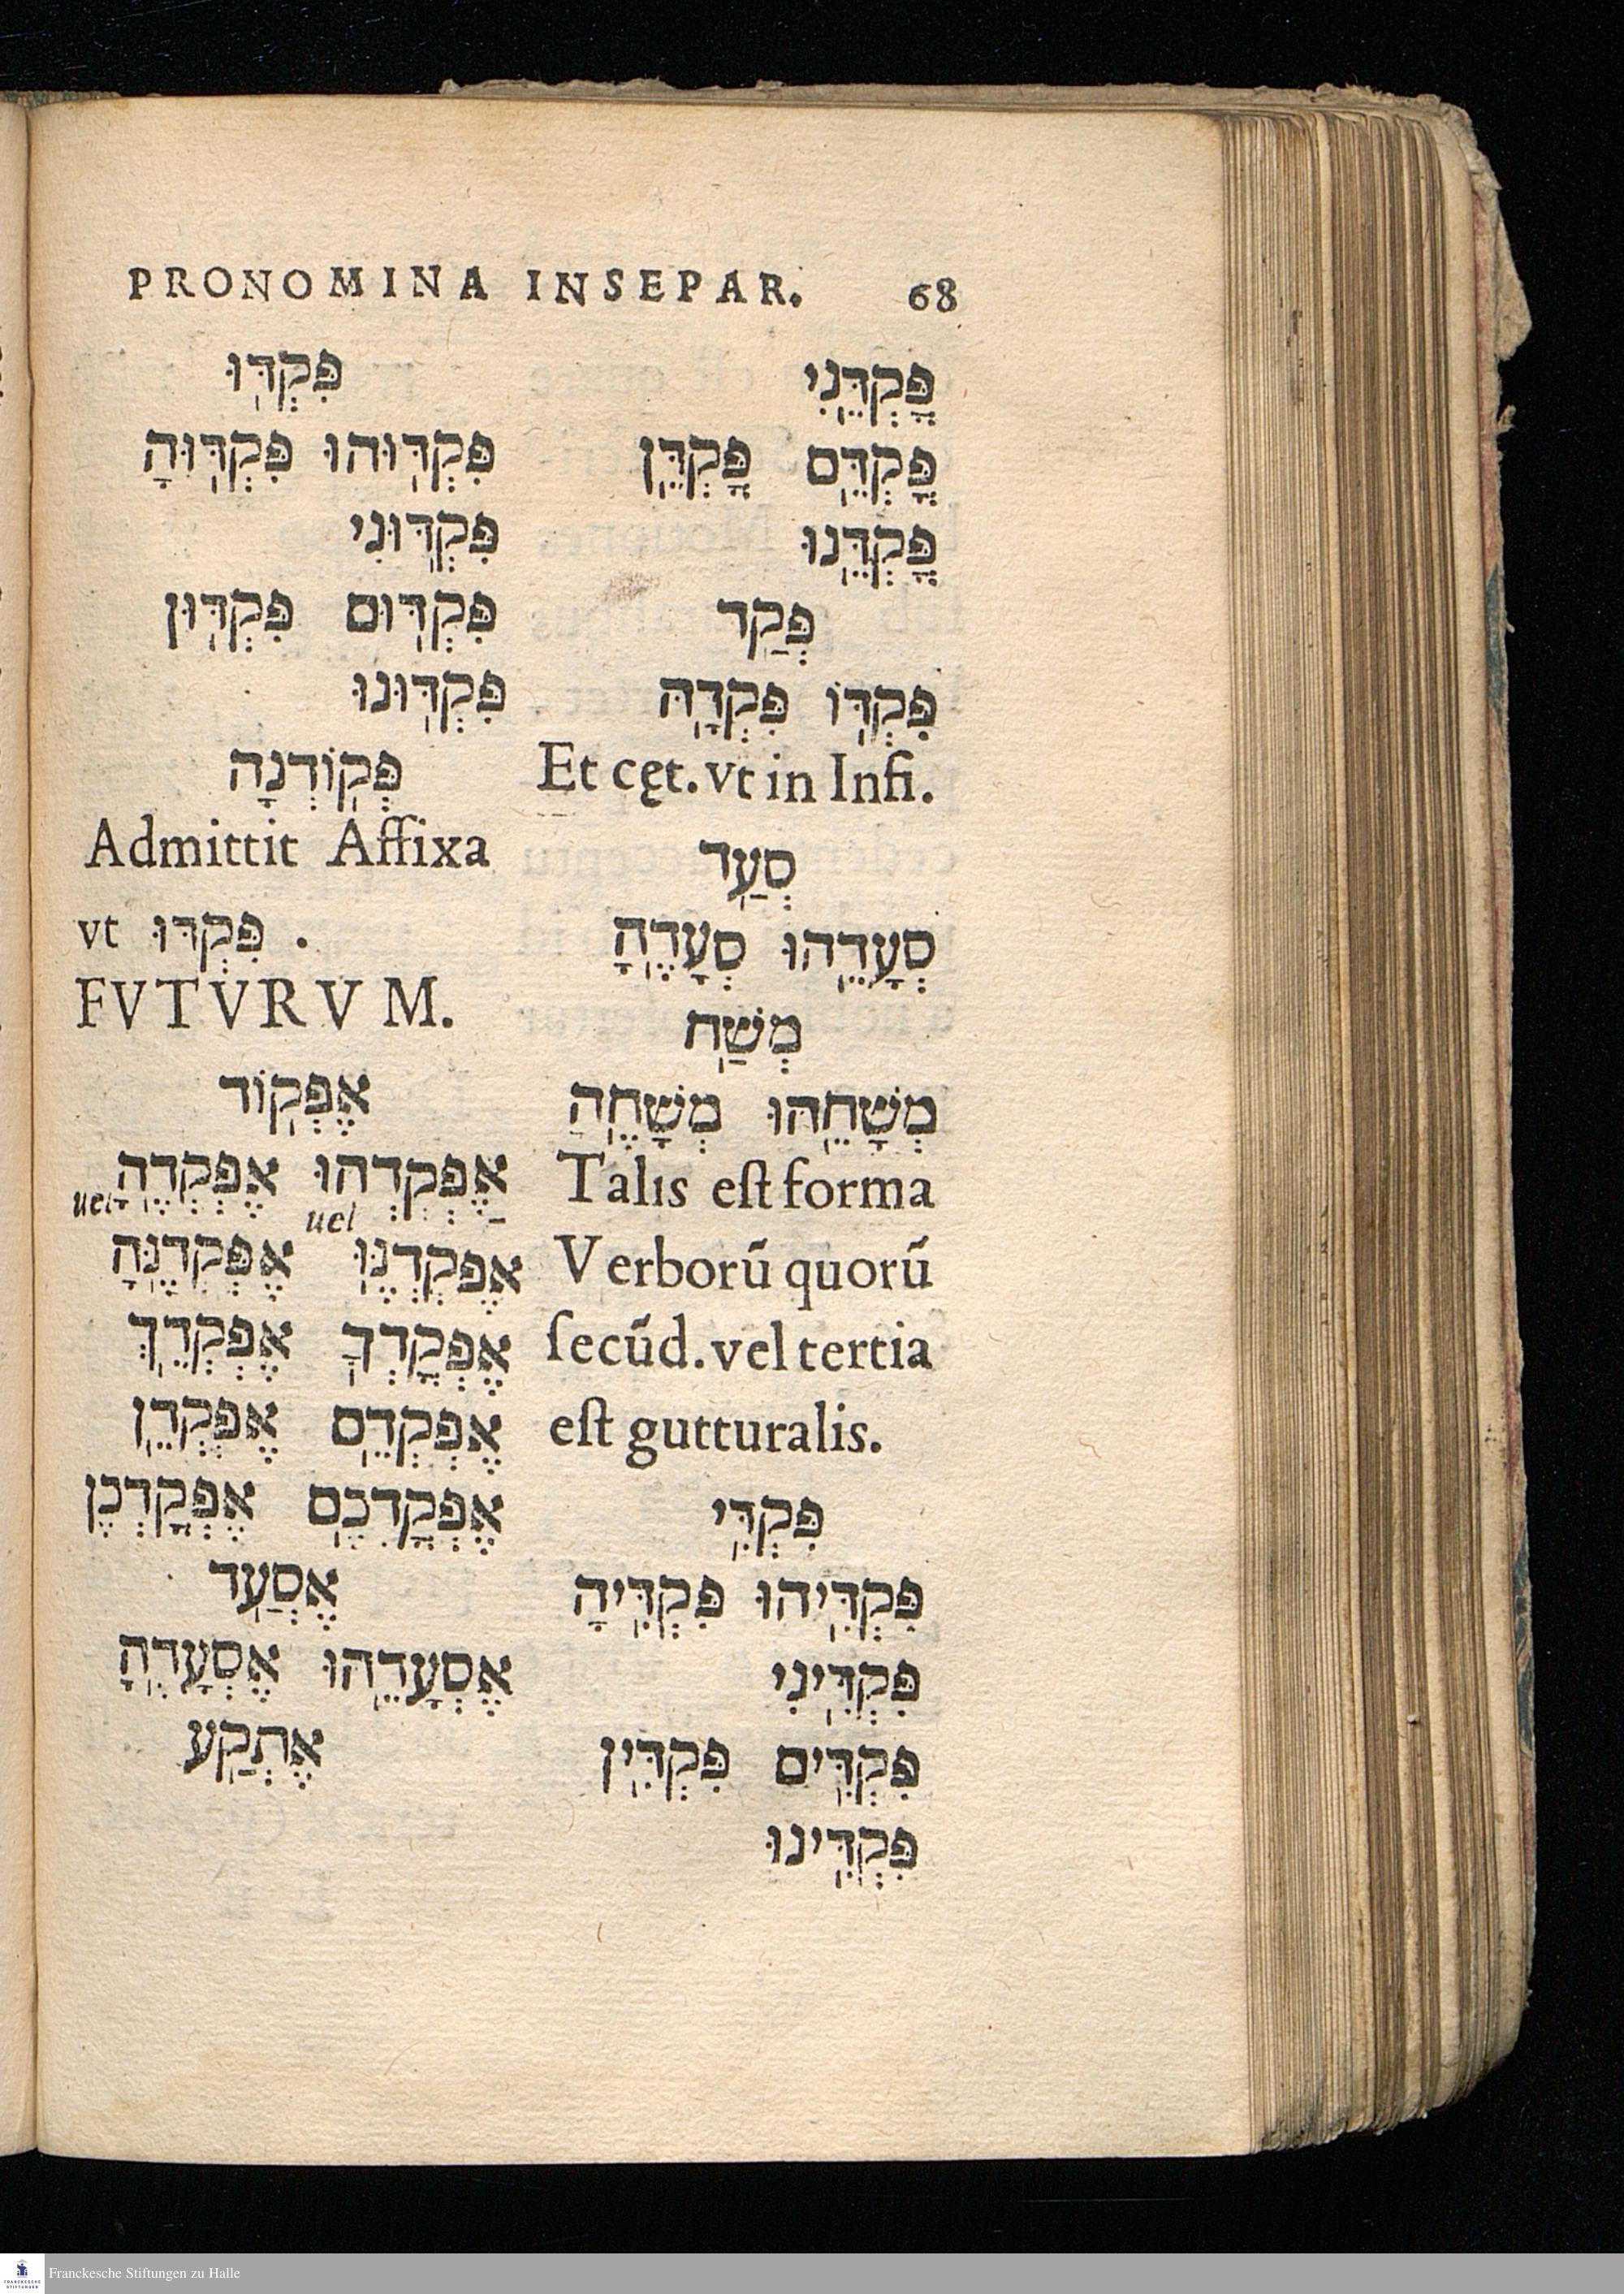 PRONOMINA INSEPAR. 68
פָּקְדֵנִי
פָּקְדֵם פָּקְדֵן
פָּקְדֵנוּ
פְּקַד
פִּקְדוֹ פִּקְדָהּ
Et cęt. vt in Infi.
סְעַד
סְעָדֵהוּ סְעָדֶהָ
מְשַׁח
מְשָׁחֵהוּ מְשָׁחֶהָ
Talis eſt forma
Verborũ quorũ
ſecũd. vel tertia
eſt gutturalis.
פִּקְדִּי
פִּקְדִּיהוּ פִּקְדִּיהָ
פִּקְדִּינִי
פִּקְדִּים פִּקְדִּין
פִּקְדִּינוּ
פִּקְדּוּ
פִּקְדּוּהוּ פִּקְדּוּהָ
פִּקְדּוּנִי
פִּקְדּוּם פִּקְדּוּן
פִּקְדּוּנוּ
פְּקוֹדְנָה
Admittit Affixa
vt פִּקְדּוּ .
FVTVRVM.
אֶפְקוֹד
אֶפְקְדֵהוּ אֶפְקְדֶהָ
uel uel
אֶפְקְדֶנּוּ אֶפְקְדֶנָּה
אֶפְקָדְךָ אֶפְקְדֵךְ
אֶפְקְדֵם אֶפְקְדֵן
אֶפְקָדְכֶם אֶפְקָדְכֶן
אֶסְעַד
אֶסְעָדֵהוּ אֶסְעָדֶהָ
אֶתְקַע
Franckesche Stiftungen zu Halle